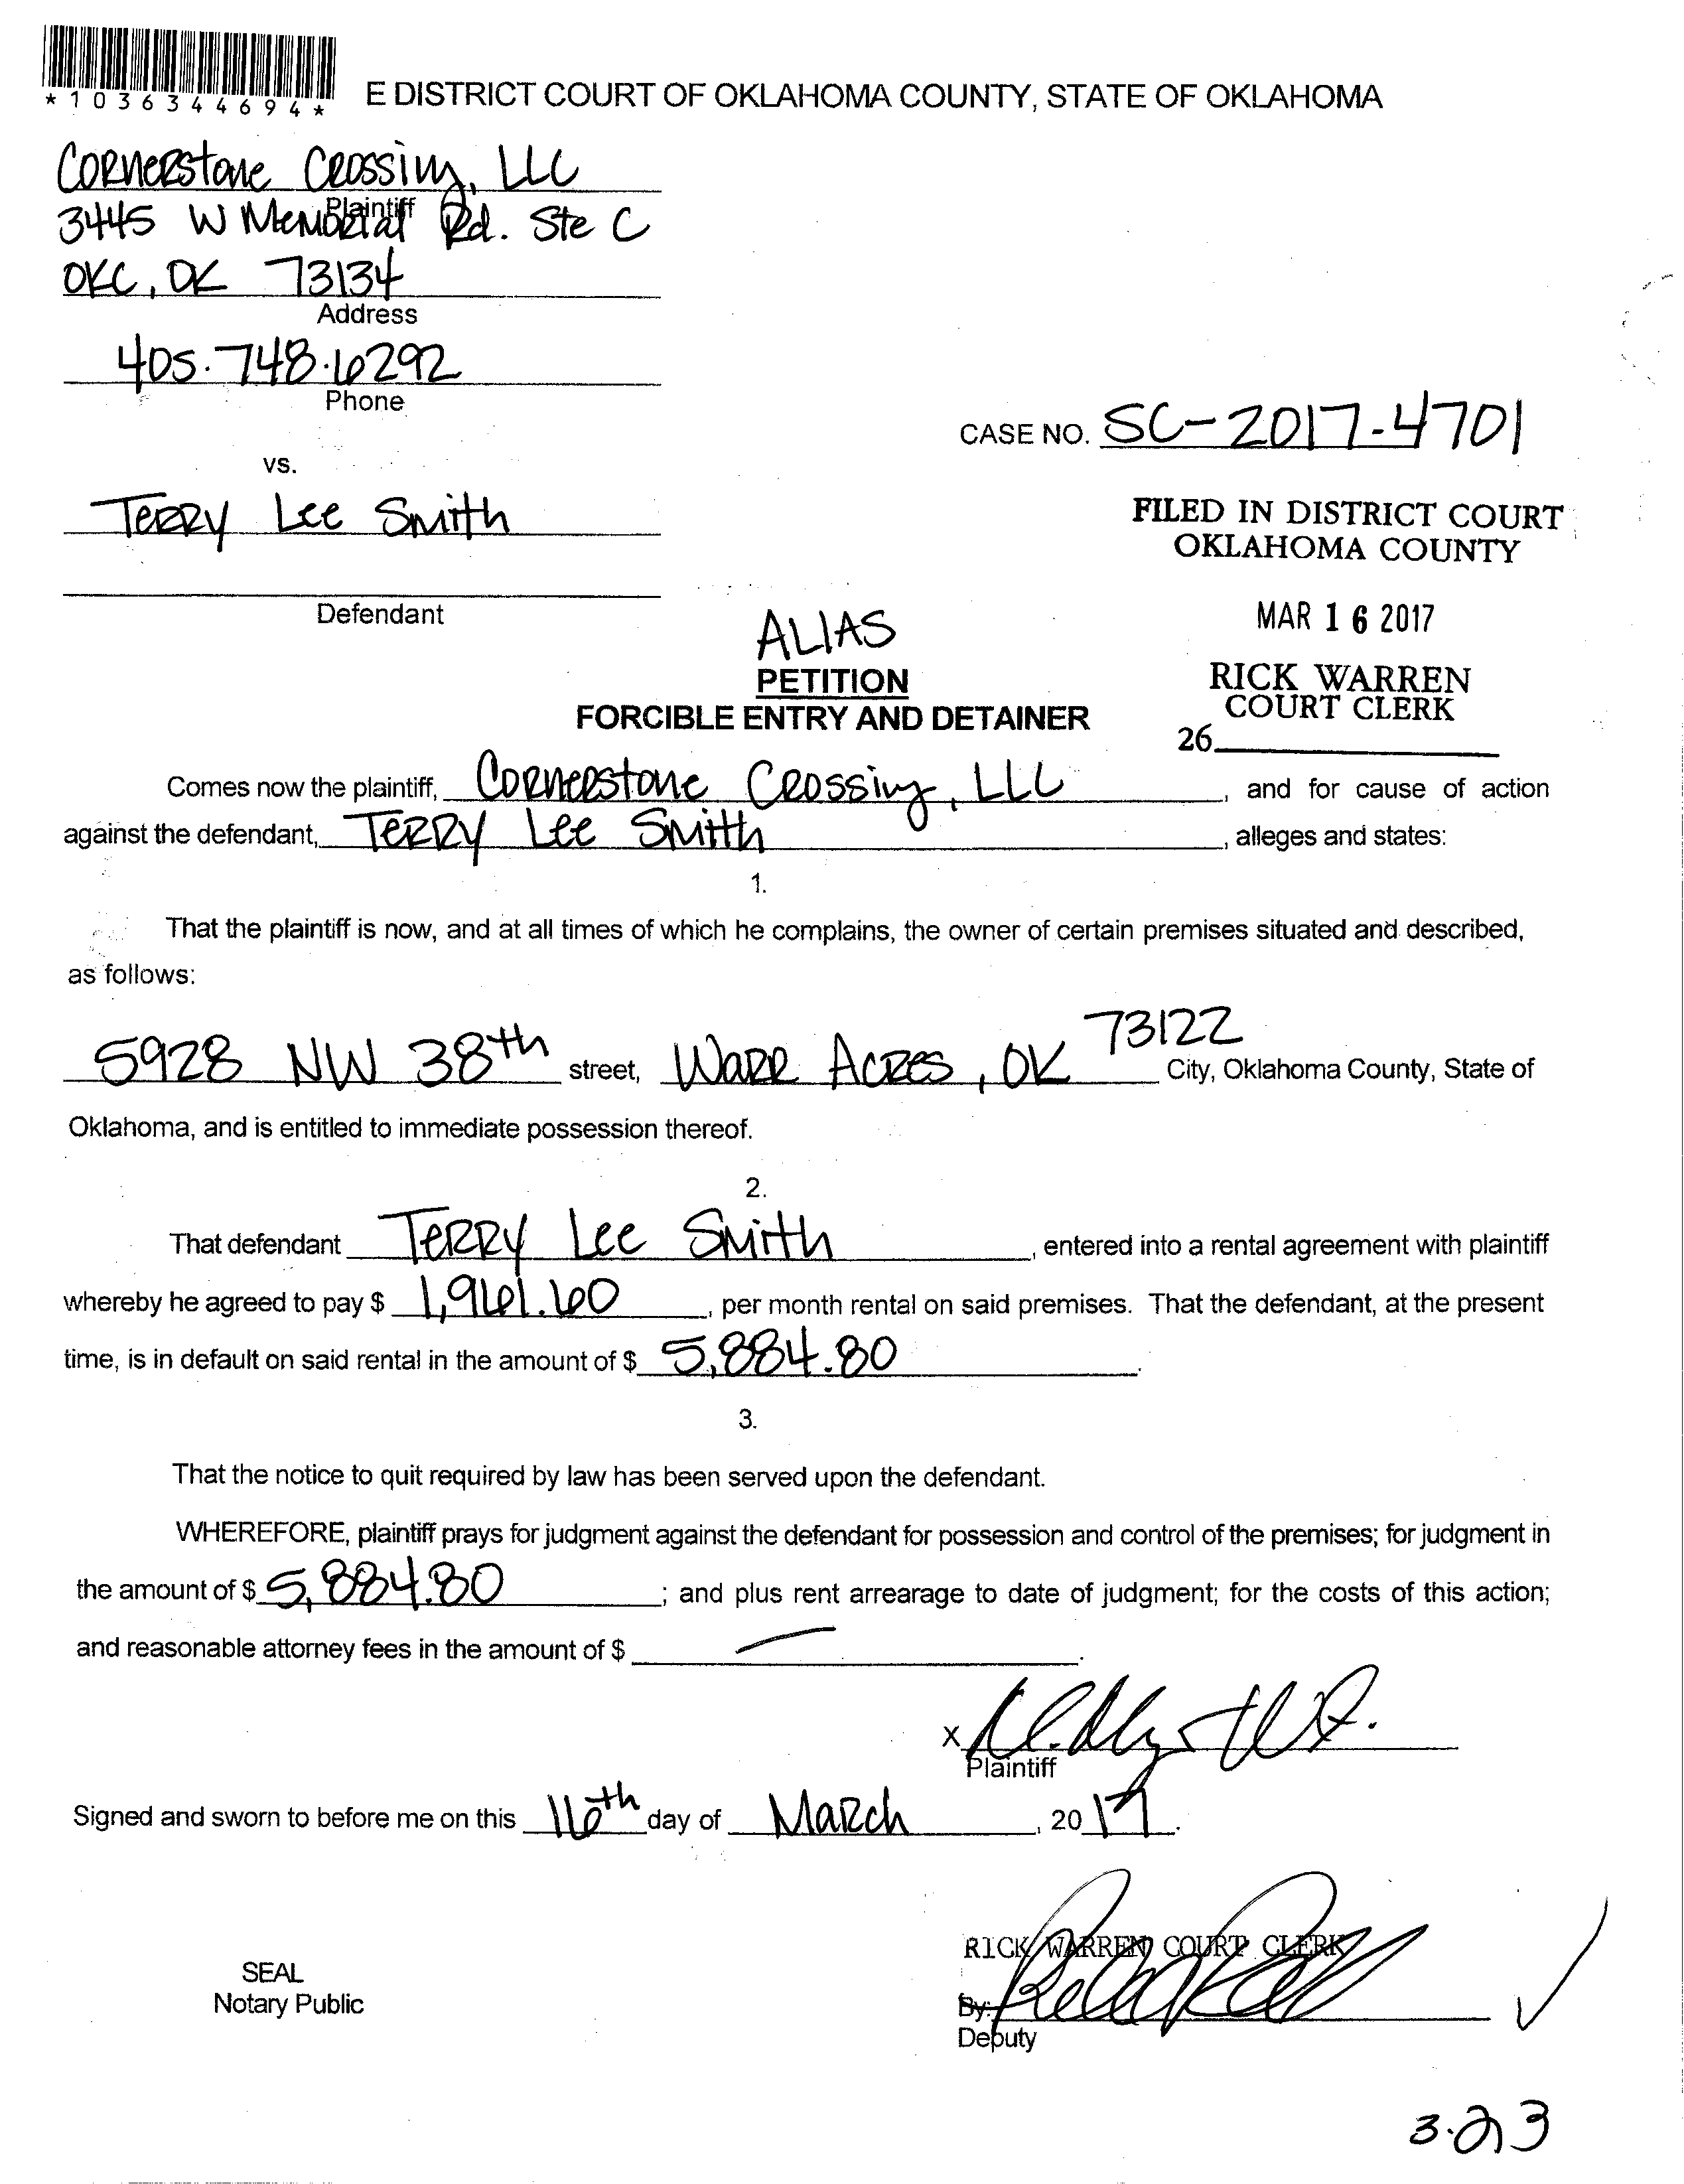 *1036344694*
E DISTRICT COURT OF OKLAHOMA COUNTY, STATE OF OKLAHOMA
Cornerstone Crossing, LLC
Plaintiff
3445 W Memorial Rd. Ste C
OKC, OK 73134
Address
405.748.6292
Phone
CASE NO. SC-2017-4701
vs.
Terry Lee Smith
FILED IN DISTRICT COURT
OKLAHOMA COUNTY
Defendant
MAR 16 2017
ALIAS
PETITION
RICK WARREN
COURT CLERK
FORCIBLE ENTRY AND DETAINER
26
Comes now the plaintiff, Cornerstone Crossing, LLC, and for cause of action
against the defendant, Terry Lee Smith, alleges and states:
1.
That the plaintiff is now, and at all times of which he complains, the owner of certain premises situated and described,
as follows:
5928 NW 38th street, Warr Acres, OK 73122 City, Oklahoma County, State of
Oklahoma, and is entitled to immediate possession thereof.
2.
That defendant Terry Lee Smith, entered into a rental agreement with plaintiff
whereby he agreed to pay $ 1,961.60, per month rental on said premises. That the defendant, at the present
time, is in default on said rental in the amount of $ 5,884.80.
3.
That the notice to quit required by law has been served upon the defendant.
WHEREFORE, plaintiff prays for judgment against the defendant for possession and control of the premises; for judgment in
the amount of $ 5,884.80; and plus rent arrearage to date of judgment; for the costs of this action;
and reasonable attorney fees in the amount of $ —.
X
Plaintiff
Signed and sworn to before me on this 16th day of March, 2017.
RICK WARREN COURT CLERK
SEAL
Notary Public
By:
Deputy
3.23